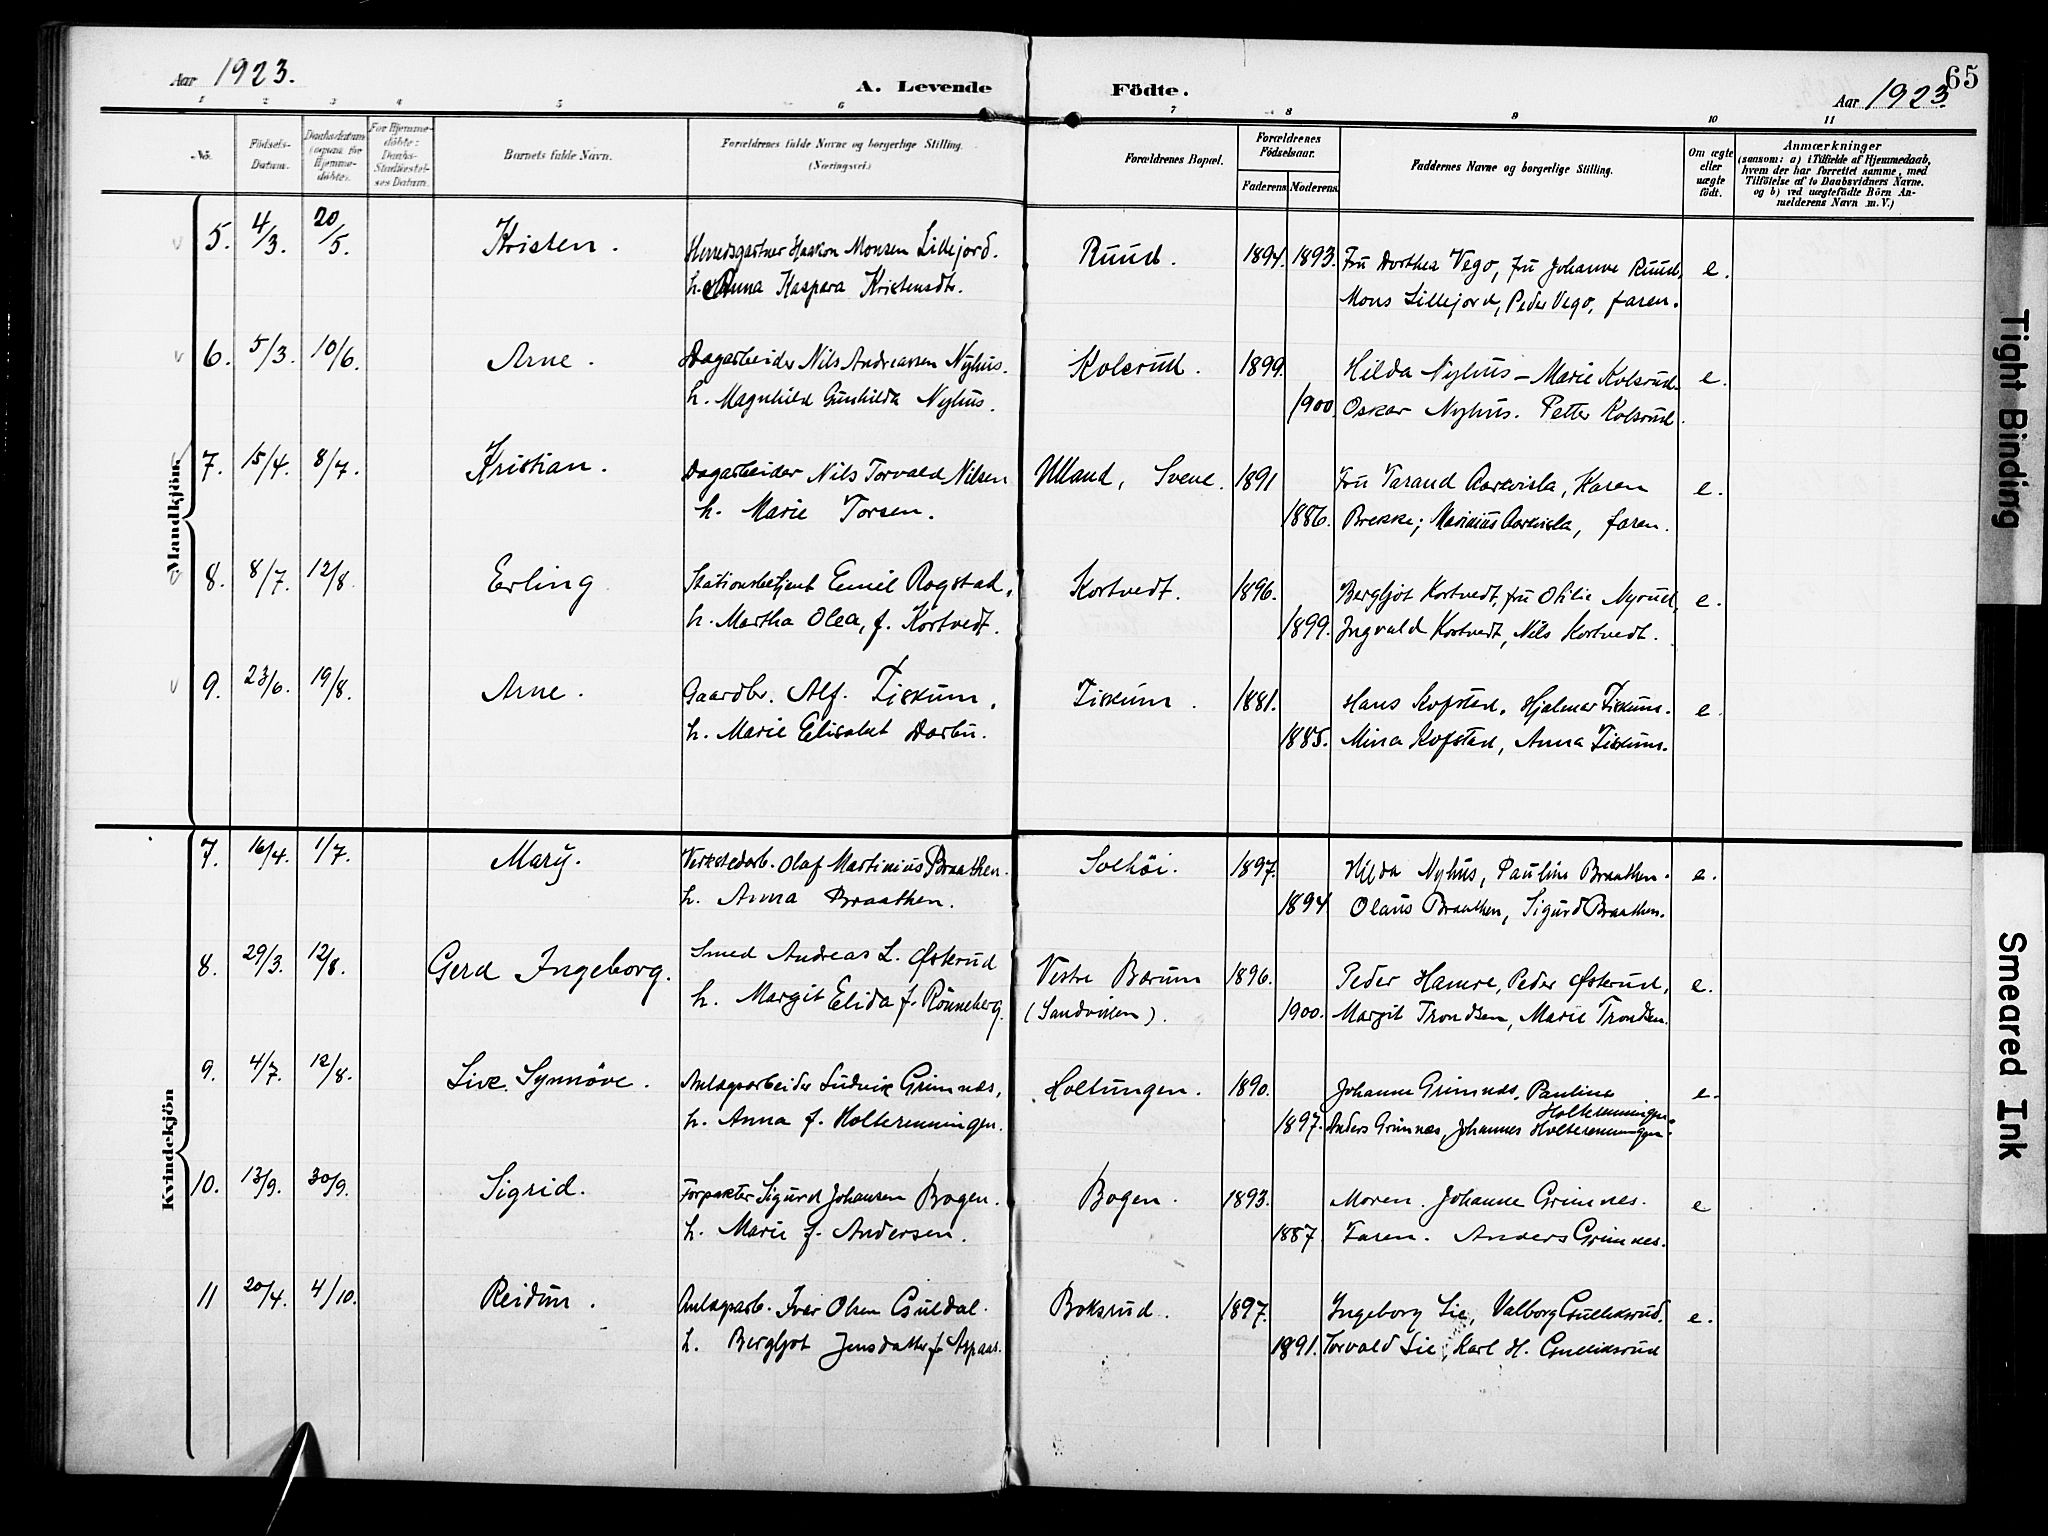 65
Aar 1923.
A. Levende
Födte.
Aar 1923.
1 2 3 4 5 6 7 8 9 10 11
No.
Födsels-
Datum.
Daabsdatum
(ogsaa for
Hjemme-
döbte).
For Hjemme-
döbte:
Daabs-
Stadfæstel-
ses Datum.
Barnets fulde Navn.
Forældrenes fulde Navne og borgerlige Stilling.
(Næringsvei.)
Forældrenes Bopæl.
Forældrenes
Födselsaar.
Faderens. Moderens.
Faddernes Navne og borgerlige Stilling.
Om ægte
eller
uægte
födt.
Anmærkninger
(saasom: a) i Tilfælde af Hjemmedaab,
hvem der har forrettet samme, med
Tilföielse af to Daabsvidners Navne.
og b) ved uægtefödte Börn An-
melderens Navn m. V.)
Mandkjön.
5. 4/3. 20/5. Kristen. Haakon Monsen Lillejord. Ruud. 1894. 1893. Fru Dorthea Vego, fru Johanne Ruud, e.
h. Anna Kaspara Kristensdtr. Mons Lillejord, Peder Vego, faren.
6. 5/3. 10/6. Arne. Dagarbeider Nils Andreassen Nyhus. Kolsrud. 1899. Hilda Nyhus – Marie Kolsrud. e.
h. Magnhild Gunhilda Nyhus. 1900. Oskar Nyhus. Petter Kolsrud.
7. 15/4. 8/7. Kristian. Dagarbeider Nils Torvald Nilsen Ulland, Svene. 1891 Fru Karen e.
h. Marie Torsen. 1886. Brekke; faren.
8. 8/7. 12/8. Erling Stationsbetjent Emil Rogstad, Kortvedt. 1896. Bergljot Kortvedt, fru Otilie Nyrud, e.
h. Martha Olea, f. Kortvedt. 1899. Ingvald Kortvedt, Nils Kortvedt.
9. 23/6. 19/8. Arne. Gaardbr. Alf. Fiskum, Fiskum. 1881. Hans Kofstad, Hjalmar Fiskum. e.
h. Marie Elisabet Darbu. 1885. Mina Kofstad, Anna Fiskum.
Kvindekjön
7. 16/4. 1/7. Mary. Verkstedarb. Olaf Martinius Braathen. Solhöi. 1897. Hilda Nyhus, Pauline Braathen. e.
h. Anna Braathen. 1894 Olaus Braathen, Sigurd Braathen.
8. 29/3. 12/8. Gerd Ingeborg. Smed Andreas L. Østerud Vestre Bærum 1896. Peder Hamre, Peder Østerud, e.
h. Margit Elida f. Rönneberg. (Sandviken). 1900. Margit Trondsen, Marie Trondsen.
9. 4/7. 12/8. Live Synnöve. Anlægsarbeider Ludvik Grimnæs, Holtungen. 1890. Johanne Grimnæs, Pauline e.
Holterenningen
h. Anna f. Holterenningen. 1897. Anders Grimnæs, Johannes Holterenningen.
10. 13/9. 30/9. Sigrid. Forpakter Sigurd Johansen Bogen. Bogen. 1893. Moren. Johanne Grimnes. e
h. Marie f. Andersen. 1887 Faren. Anders Grimnes.
11 20/4. 4/10. Reidun. Anlægsarb. Ivar Olsen Guldal. Boksrud. 1897. Ingeborg Lie, Valborg Gulliksrud. e.
h. Bergljot Jensdatter f. Aspaas. 1891. Torvald Lie, Karl H. Gulliksrud
Tight Binding
Smeared Ink